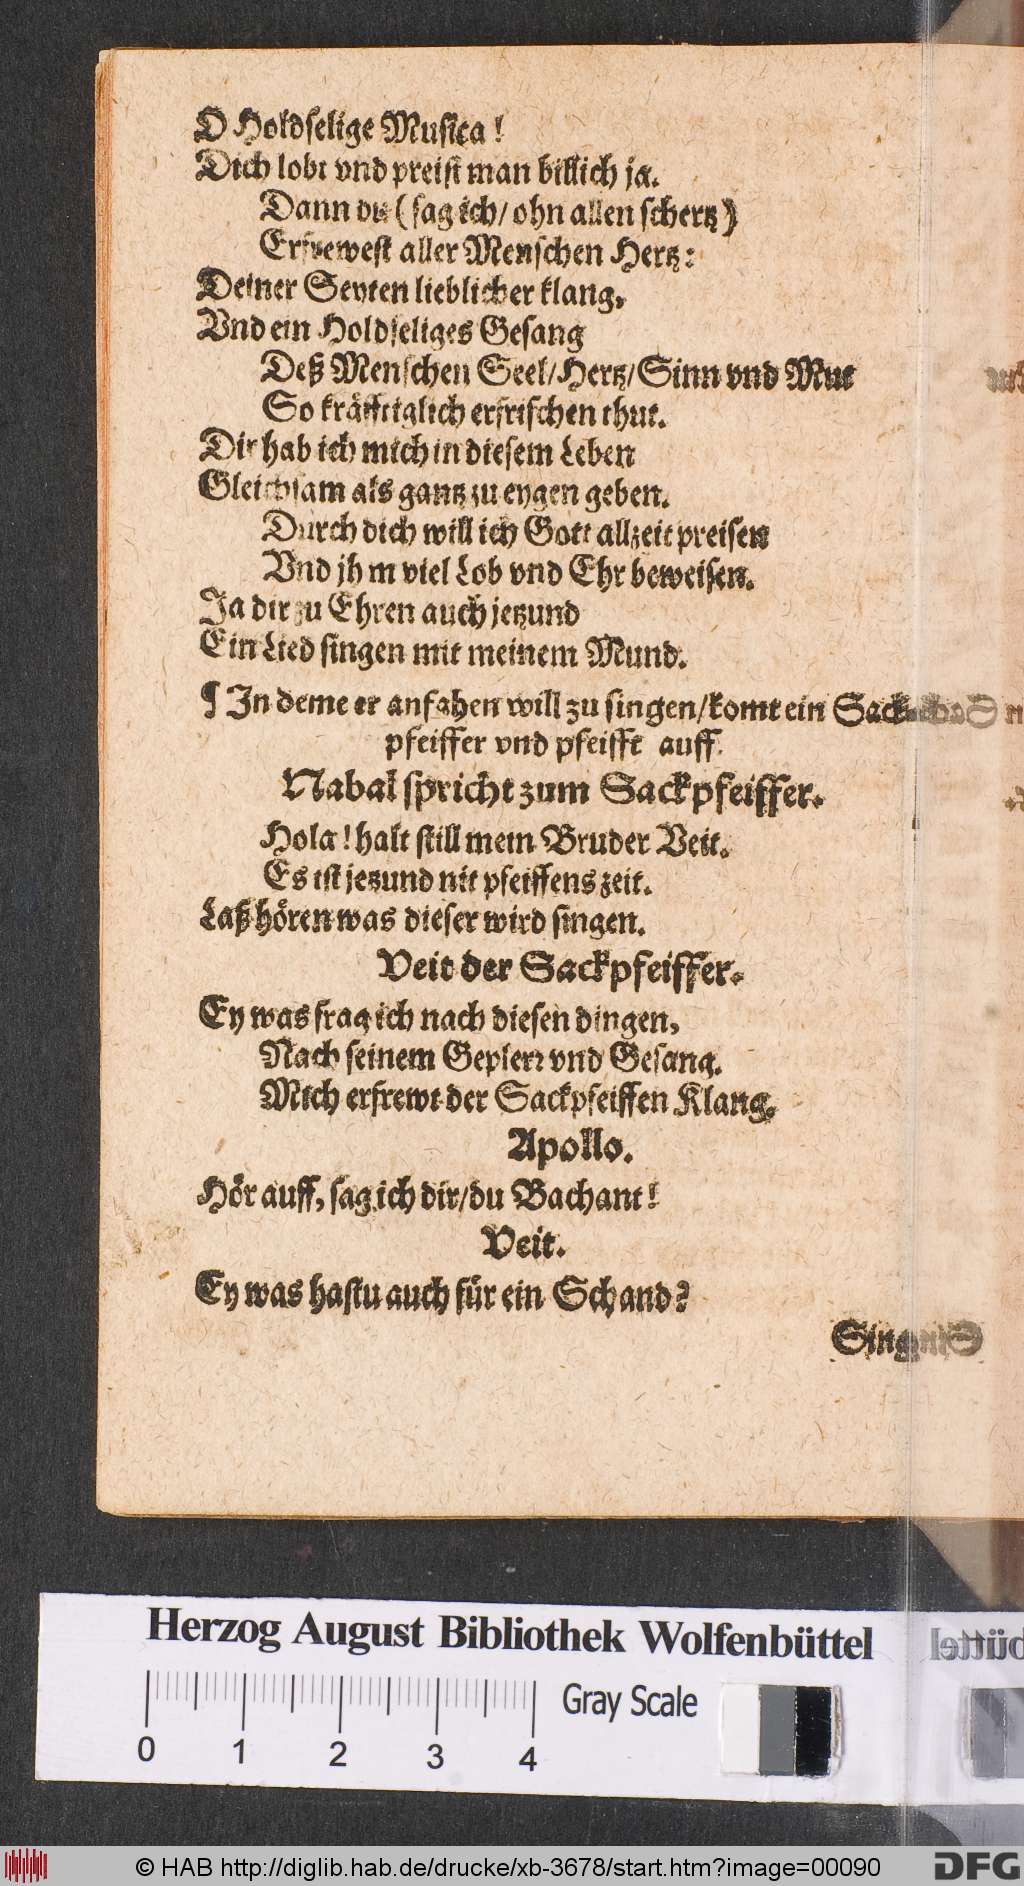 O Holdselige Musica!
Dich lobt vnd preist man billich ja.
Dann du (sag ich/ ohn allen schertz)
Erfrewest aller Menschen Hertz:
Deiner Seyten lieblicher klang,
Vnd ein Holdseliges Gesang
Deß Menschen Seel/Hertz/Sinn vnd Mut
So kräfftiglich erfrischen thut.
Dir hab ich mich in diesem Leben
Gleichsam als gantz zu eygen geben.
Durch dich will ich Gott allzeit preisen
Vnd jhm viel Lob vnd Ehr beweisen.
Ja dir zu Ehren auch jetzund
Ein Lied singen mit meinem Mund.
¶ In deme er anfahen will zu singen/komt ein Sack-
pfeiffer vnd pfeifft auff.
Nabal spricht zum Sackpfeiffer.
Hola! halt still mein Bruder Veit.
Es ist jetzund nit pfeiffens zeit.
Laß hören was dieser wird singen.
Veit der Sackpfeiffer.
Ey was frag ich nach diesen dingen,
Nach seinem Geplerr vnd Gesang.
Mich erfrewt der Sackpfeiffen Klang.
Apollo.
Hör auff, sag ich dir/du Bachant!
Veit.
Ey was hastu auch für ein Schand?
Sing
Herzog August Bibliothek Wolfenbüttel
0 1 2 3 4 Gray Scale
© HAB http://diglib.hab.de/drucke/xb-3678/start.htm?image=00090
DFG